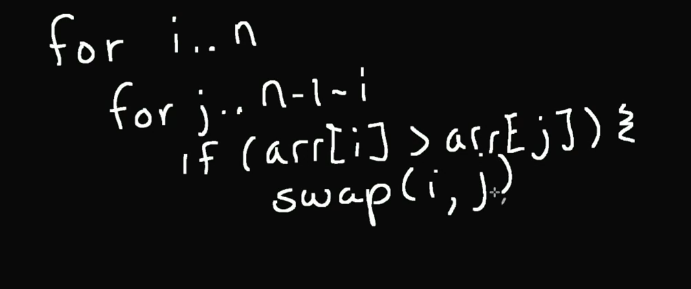 for i..n
for j..n-1-i
if (arr[i] > arr[j]) {
swap(i, j)